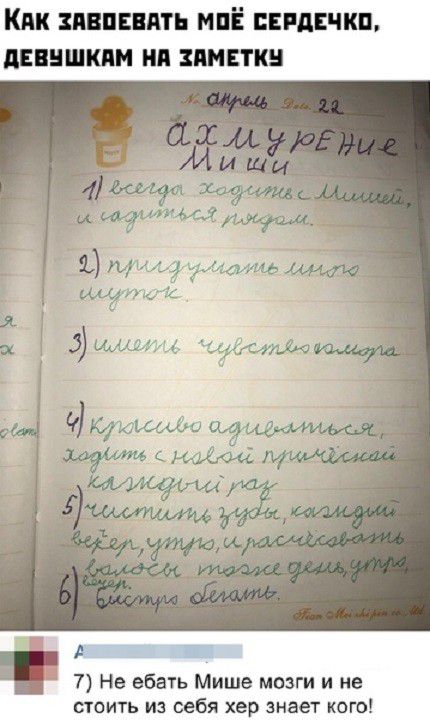 Как завоевать моё сердечко,
девушкам на заметку
№ апрель Date. 22
ахмурение
Миши
1) всегда ходить с Мишей,
и садиться рядом.
2) придумать много
шуток.
3) иметь чувство юмора
4) красиво адиваться,
ходить с новой причёской
каждый раз
5) чистить зубы, каждый
вечер, утро, и расчёсовать
волосы тоже день, утро,
вечер.
6) быстро бегать.
я
х
7) Не ебать Мише мозги и не
стоить из себя хер знает кого!